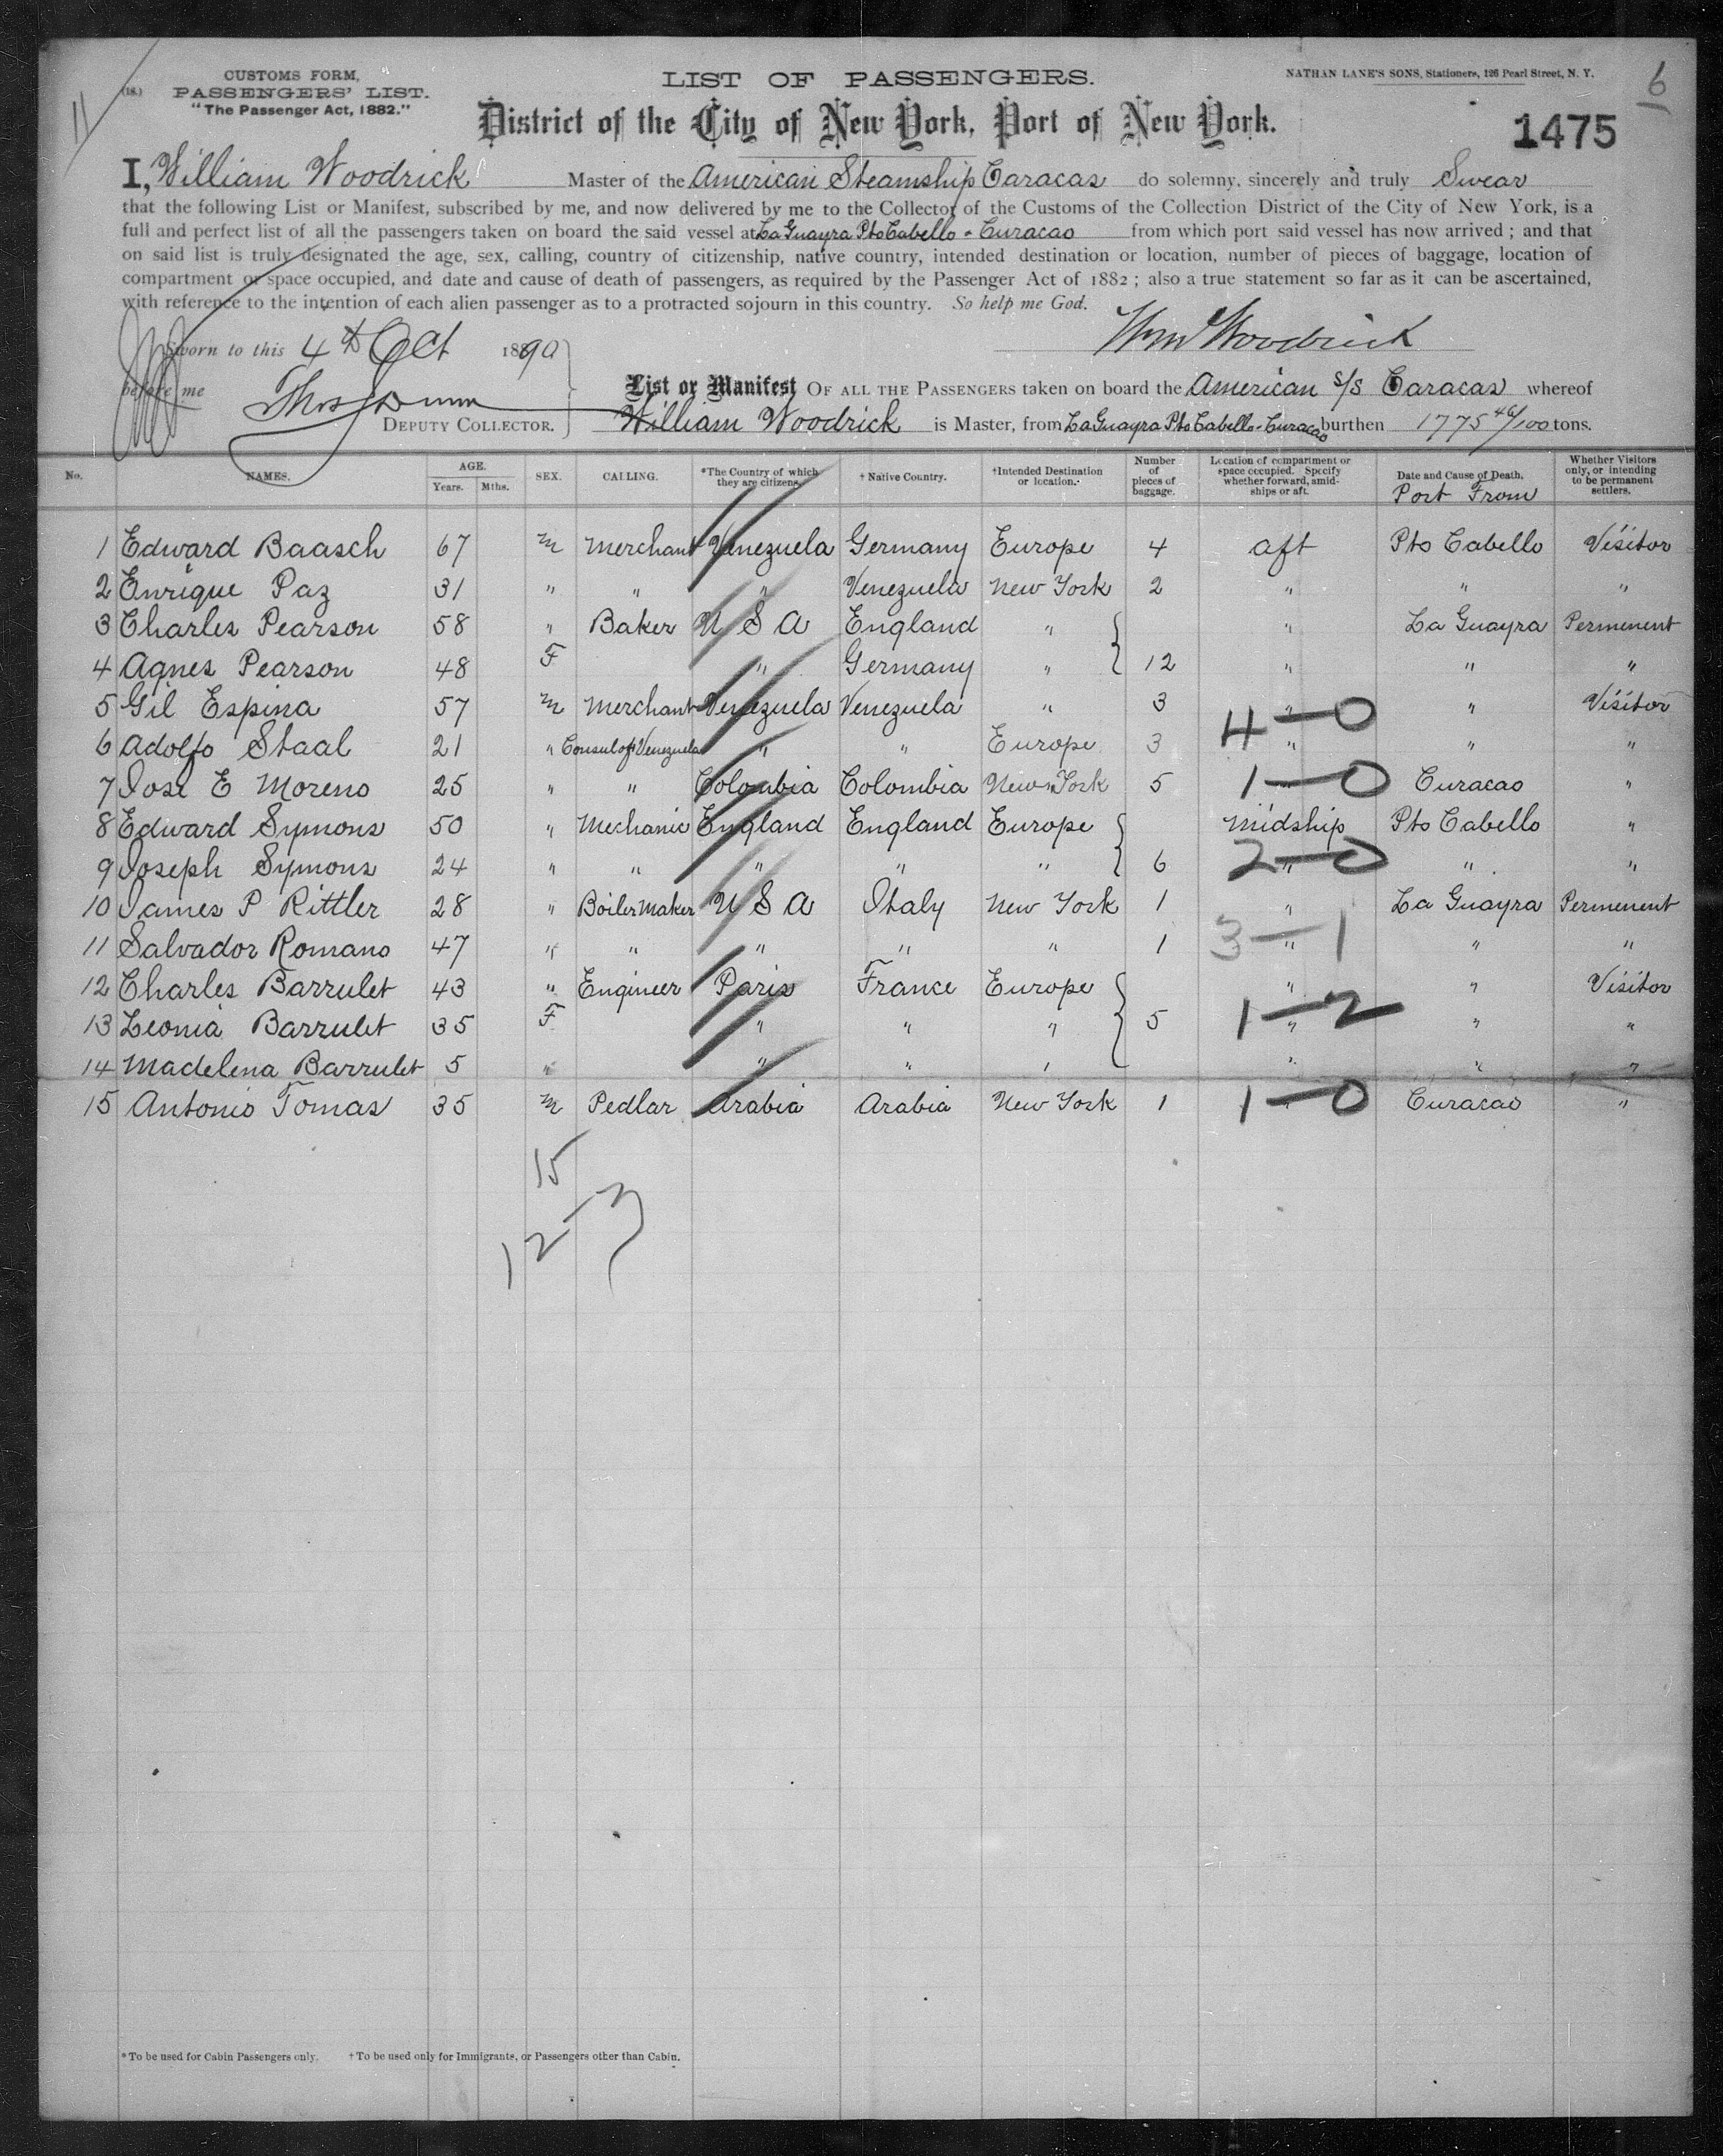 11
(18.)
CUSTOMS FORM,
PASSENGERS' LIST.
"The Passenger Act, 1882."
LIST OF PASSENGERS.
NATHAN LANE'S SONS, Stationers, 126 Pearl Street, N. Y.
6
District of the City of New York, Port of New York.
1475
I, William Woodrick Master of the American Steamship Caracas do solemny, sincerely and truly Swear
that the following List or Manifest, subscribed by me, and now delivered by me to the Collector of the Customs of the Collection District of the City of New York, is a
full and perfect list of all the passengers taken on board the said vessel at La Guayra Pto Cabello - Curacao from which port said vessel has now arrived; and that
on said list is truly designated the age, sex, calling, country of citizenship, native country, intended destination or location, number of pieces of baggage, location of
compartment or space occupied, and date and cause of death of passengers, as required by the Passenger Act of 1882; also a true statement so far as it can be ascertained,
with reference to the intention of each alien passenger as to a protracted sojourn in this country. So help me God.
Wm Woodrick
Sworn to this 4th Oct 1890
before me Thos Dunn
DEPUTY COLLECTOR.
List or Manifest OF ALL THE PASSENGERS taken on board the American S/S Caracas whereof
William Woodrick is Master, from La Guayra Pto Cabello - Curacao burthen 1775 46/100 tons.
No. NAMES. AGE. Years. Mths. SEX. CALLING. *The Country of which they are citizens. †Native Country. †Intended Destination or location. Number of pieces of baggage. Location of compartment or space occupied. Specify whether forward, amidships or aft. Date and Cause of Death. Port From Whether Visitors only, or intending to be permanent settlers.
1 Edward Baasch 67 M Merchant Venezuela Germany Europe 4 aft Pto Cabello Visitor
2 Enrique Paz 31 " " " Venezuela New York 2 " " "
3 Charles Pearson 58 " Baker U S A England " " La Guayra Permenent
4 Agnes Pearson 48 F " Germany " 12 " " "
5 Gil Espina 57 M Merchant Venezuela Venezuela " 3 " " Visitor
4-0
6 Adolfo Staal 21 " Consul of Venezuela " " Europe 3 " " "
7 Jose E Moreno 25 " " Colombia Colombia New York 5 1-0 Curacao "
8 Edward Symons 50 " Mechanic England England Europe Midship Pto Cabello "
9 Joseph Symons 24 " " " " " 6 " 2-0 " "
10 James P Rittler 28 " Boiler Maker U S A Italy New York 1 " La Guayra Permenent
11 Salvador Romano 47 " " " " " 1 " 3-1 " "
12 Charles Barrulet 43 " Engineer Paris France Europe " " Visitor
13 Leonia Barrulet 35 F " " " 5 " 1-2 " "
14 Madelena Barrulet 5 " " " " " " "
15 Antonio Tomas 35 M Pedlar Arabia Arabia New York 1 " 1-0 Curacao "
15
12-3
*To be used for Cabin Passengers only. †To be used only for Immigrants, or Passengers other than Cabin.